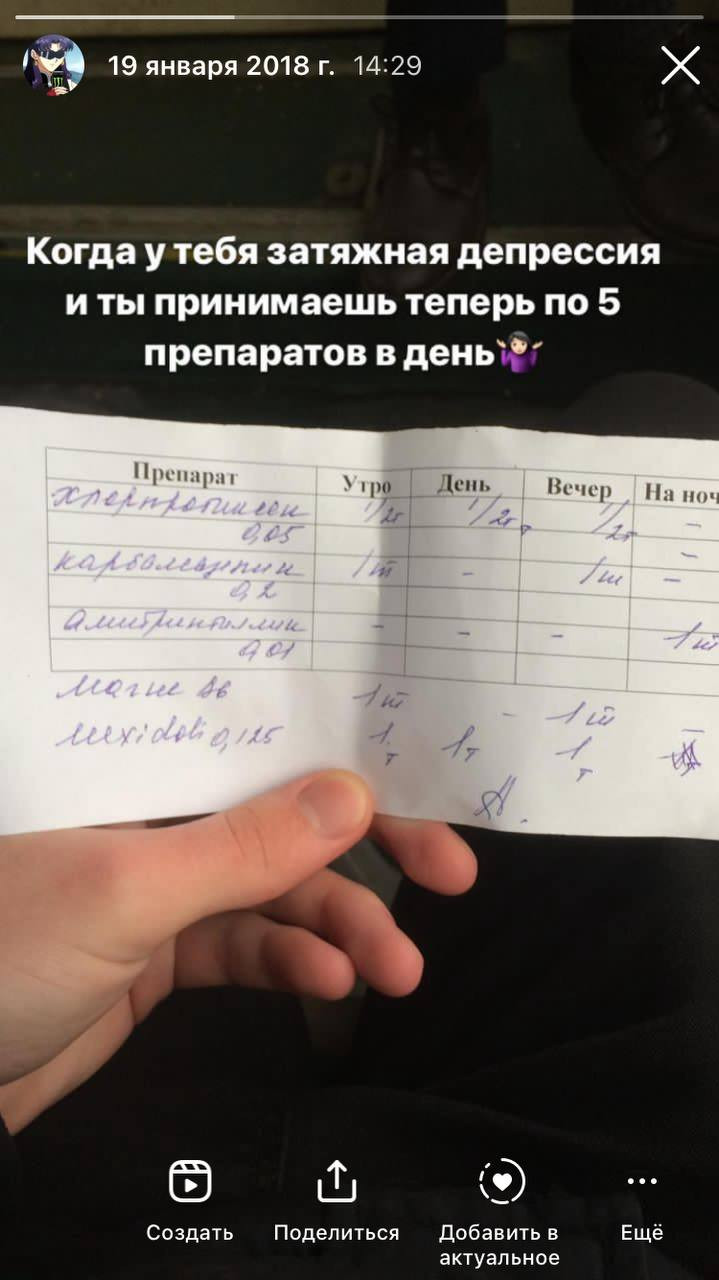 19 января 2018 г. 14:29
Когда у тебя затяжная депрессия
и ты принимаешь теперь по 5
препаратов в день🤷🏻‍♀️
Препарат Утро День Вечер На ноч
Хлорпротиксен 1/2т 1/2т 1/2т -
0,05 -
Карбамазепин 1т - 1т -
0,2
Амитриптиллин - - - 1т
0,01
Магне В6 1т - 1т -
Mexidoli 0,125 1т 1т 1т
Создать Поделиться Добавить в актуальное Ещё